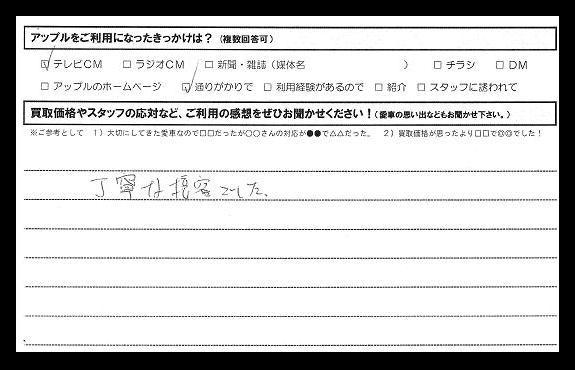 アップルをご利用になったきっかけは？（複数回答可）
☑テレビCM □ラジオCM □新聞・雑誌（媒体名 ） □チラシ □DM
□アップルのホームページ ☑通りがかりで □利用経験があるので □紹介 □スタッフに誘われて
買取価格やスタッフの応対など、ご利用の感想をぜひお聞かせください！（愛車の思い出などもお聞かせ下さい。）
※ご参考として 1）大切にしてきた愛車なので□□だったが○○さんの対応が●●で△△だった。 2）買取価格が思ったより□□で◎◎でした！
丁寧な接客でした。